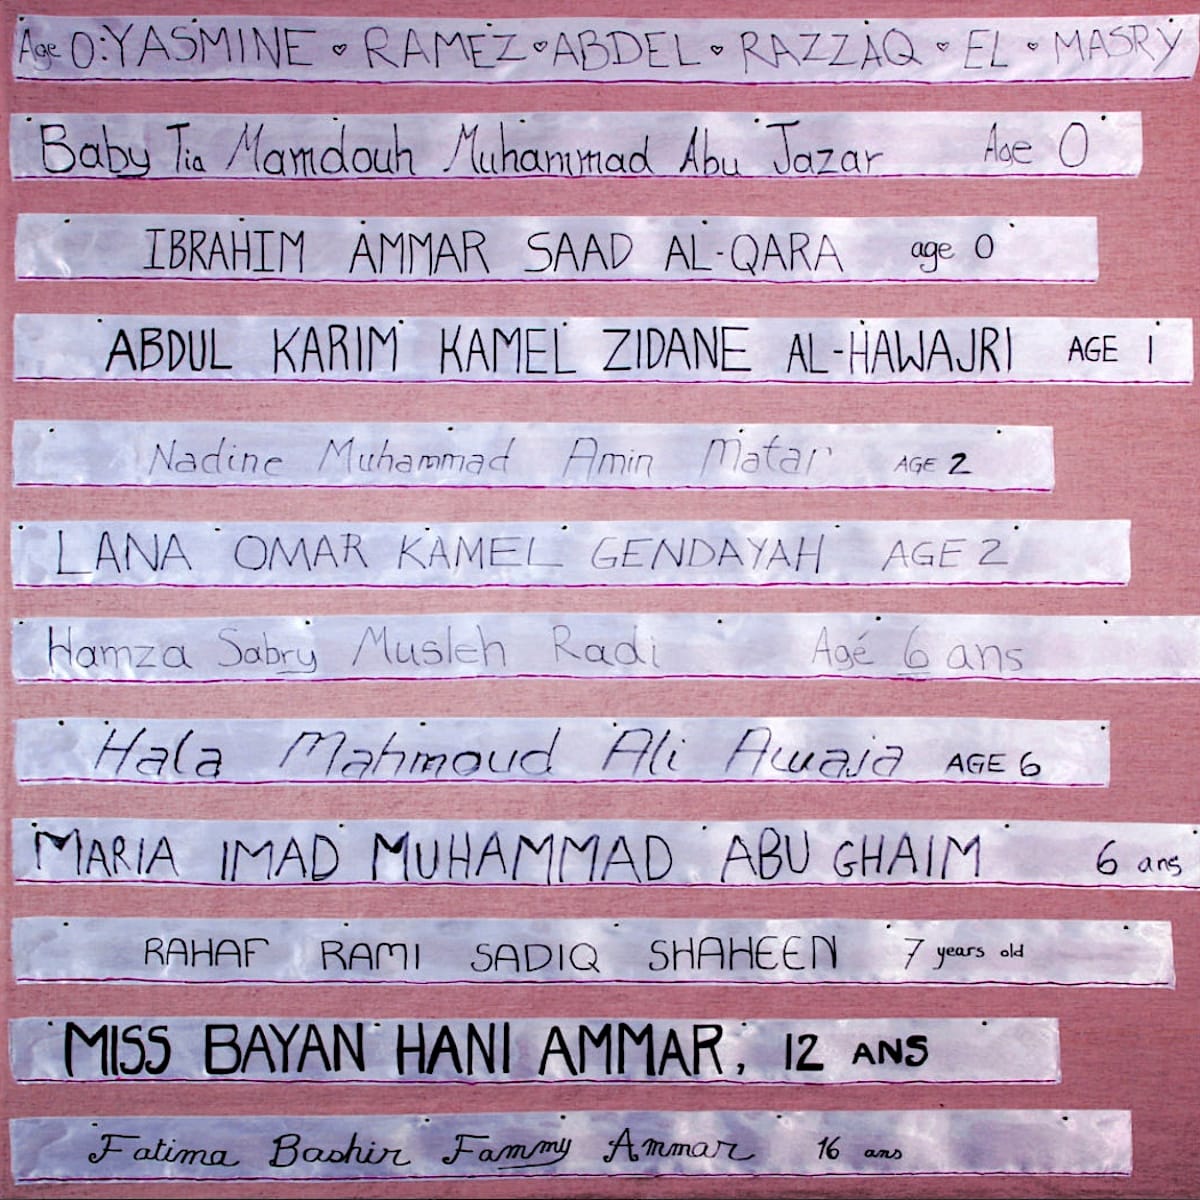 Age 0: YASMINE ♥ RAMEZ ♥ ABDEL ♥ RAZZAQ ♥ EL ♥ MASRY
Baby Tia Mamdouh Muhammad Abu Jazar Age 0
IBRAHIM AMMAR SAAD AL-QARA age 0
ABDUL KARIM KAMEL ZIDANE AL-HAWAJRI AGE 1
Nadine Muhammad Amin Matar AGE 2
LANA OMAR KAMEL GENDAYAH AGE 2
Hamza Sabry Musleh Radi Agé 6 ans
Hala Mahmoud Ali Awaja AGE 6
MARIA IMAD MUHAMMAD ABU GHAIM 6 ans
RAHAF RAMI SADIQ SHAHEEN 7 years old
MISS BAYAN HANI AMMAR, 12 ANS
Fatima Bashir Fammy Ammar 16 ans